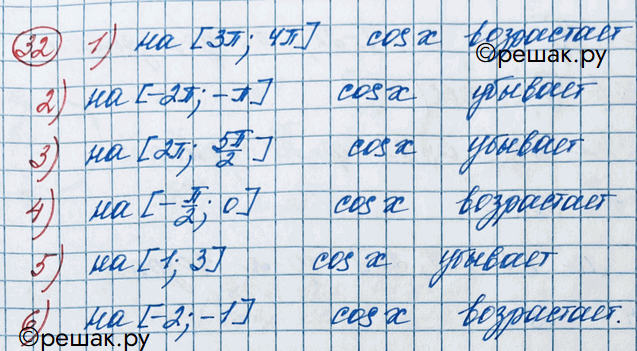 32 1) на [3π; 4π] cos x возрастает
©решак.ру
2) на [-2π; -π] cos x убывает
3) на [2π; 5π/2] cos x убывает
4) на [-π/2; 0] cos x возрастает
5) на [1; 3] cos x убывает
6) на [-2; -1] cos x возрастает.
©решак.ру